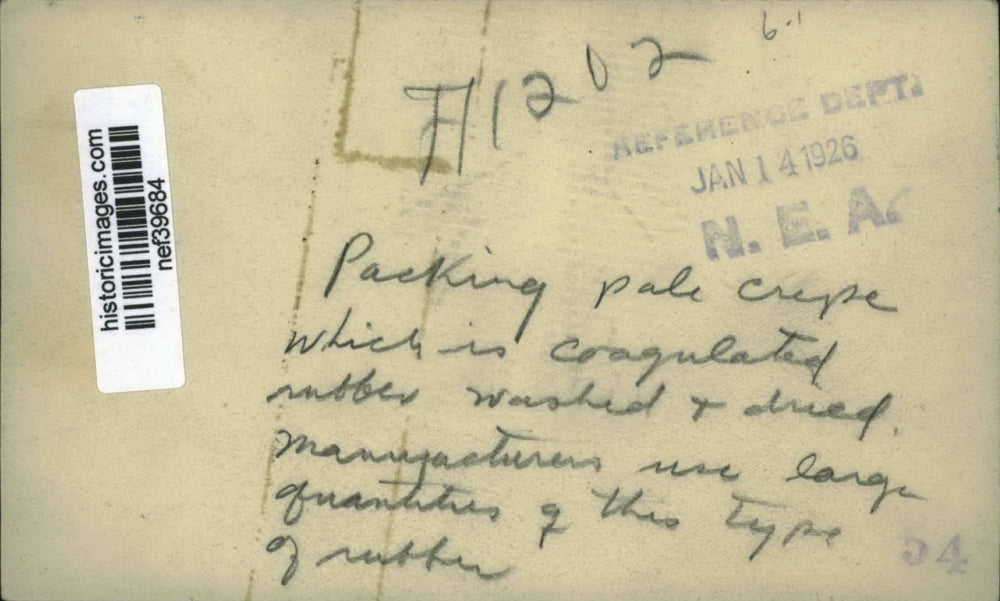 6-1
H1202
REFERENCE DEPT.
JAN 14 1926
N. E. A.
historicimages.com
nef39684
Packing pale crepe
which is coagulated
rubber washed + dried.
Manufacturers use large
quantities of this type
of rubber
54